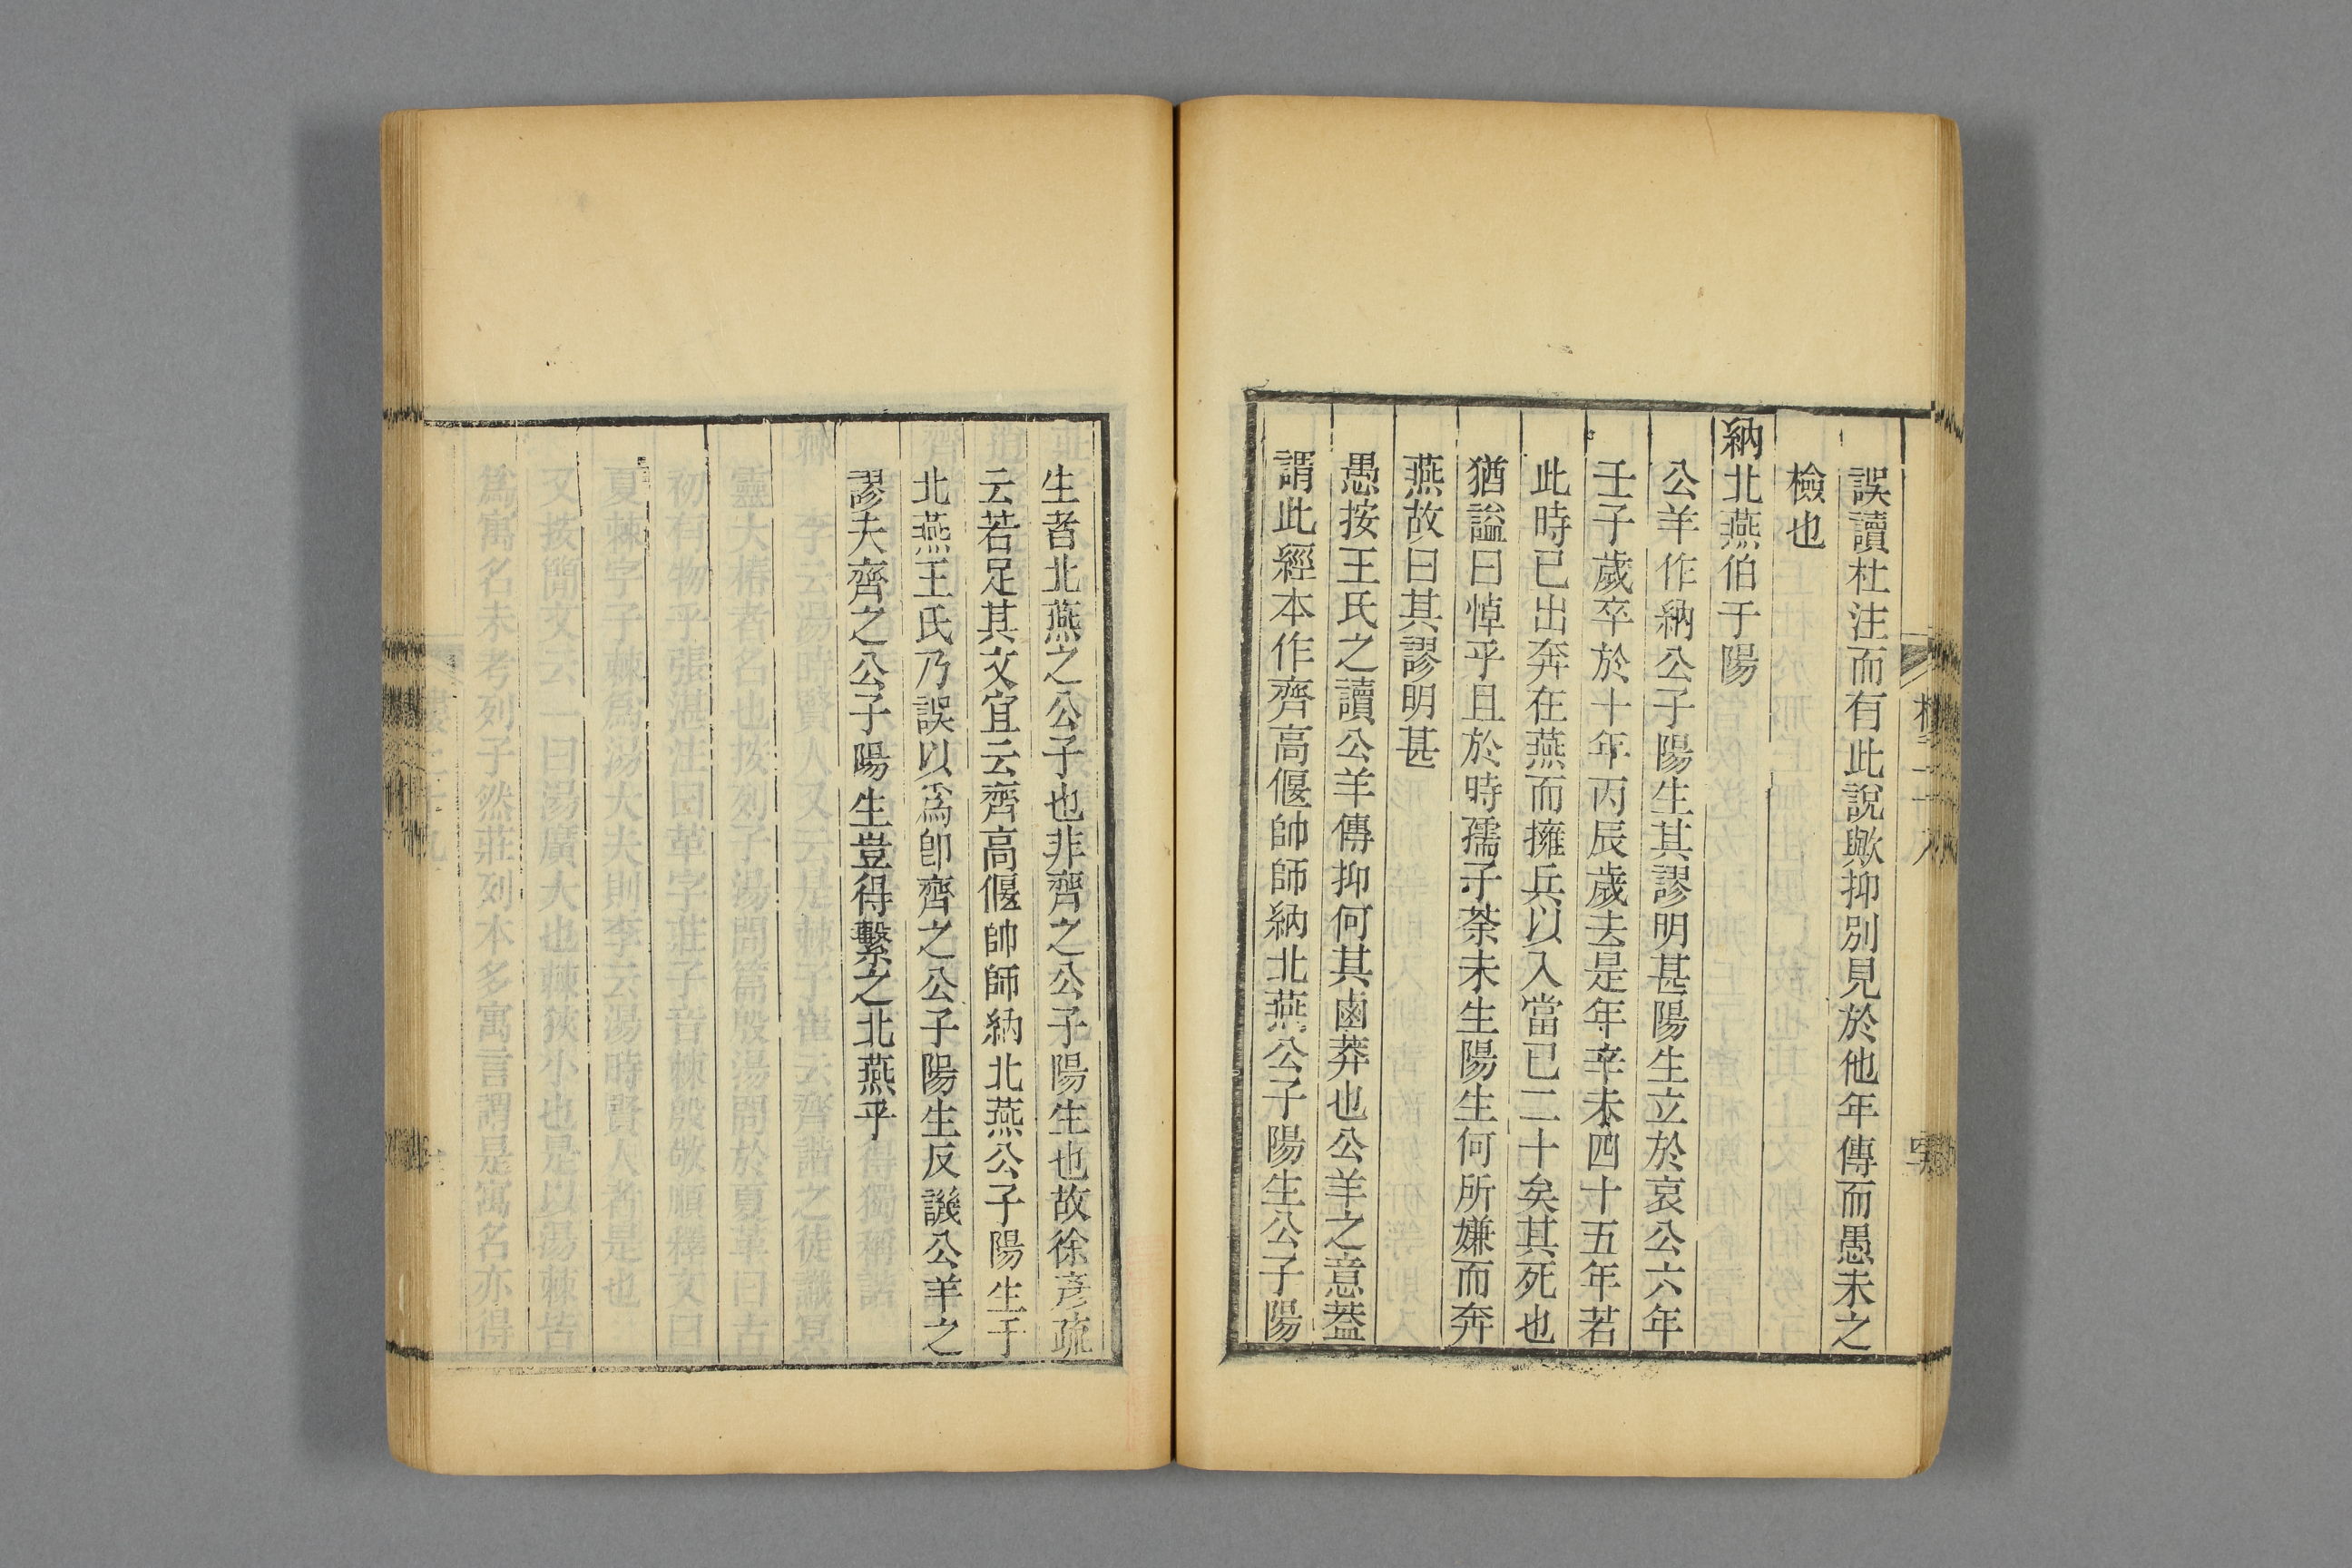 誤讀杜注而有此說歟抑別見於他年傳而愚未之
檢也
納北燕伯于陽
公羊作納公子陽生其謬明甚陽生立於哀公六年
壬子歲卒於十年丙辰歲去是年辛未四十五年若
此時已出奔在燕而擁兵以入當已二十矣其死也
猶謚曰悼乎且於時孺子荼未生陽生何所嫌而奔
燕故曰其謬明甚
愚按王氏之讀公羊傳抑何其鹵莽也公羊之意葢
謂此經本作齊高偃帥師納北燕公子陽生公子陽
生者北燕之公子也非齊之公子陽生也故徐彦疏
云若足其文宜云齊高偃帥師納北燕公子陽生于
北燕王氏乃誤以爲卽齊之公子陽生反譏公羊之
謬夫齊之公子陽生豈得繫之北燕乎